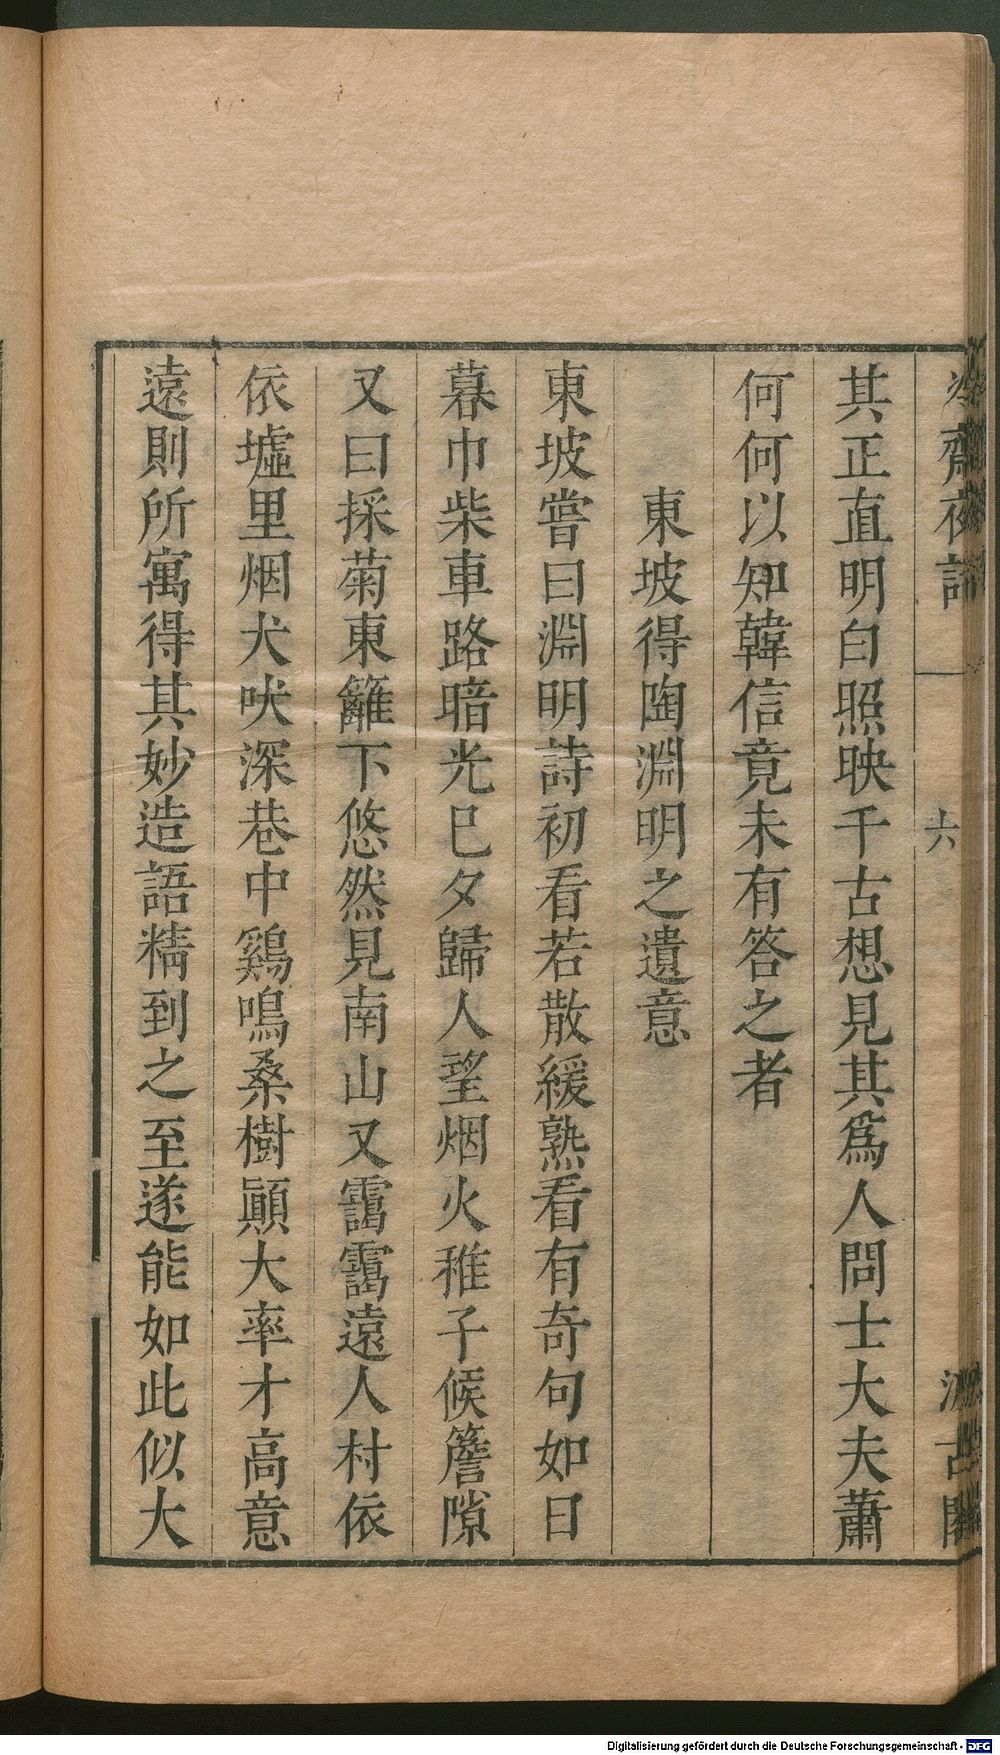 冷齋夜話
六
汲古閣
其正直明白照映千古想見其爲人問士大夫蕭
何何以知韓信竟未有答之者
東坡得陶淵明之遺意
東坡嘗曰淵明詩初看若散緩熟看有奇句如日
暮巾柴車路暗光已夕歸人望烟火稚子候簷隙
又曰採菊東籬下悠然見南山又靄靄遠人村依
依墟里烟犬吠深巷中鷄鳴桑樹顚大率才高意
遠則所寓得其妙造語精到之至遂能如此似大
Digitalisierung gefördert durch die Deutsche Forschungsgemeinschaft - DFG